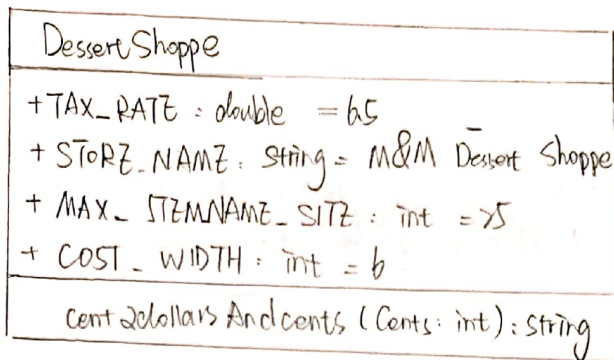 DessertShoppe
+ TAX_RATE : double = 6.5
+ STORE_NAME : String = M&M Dessert Shoppe
+ MAX_ITEMNAME_SIZE : int = 25
+ COST_WIDTH : int = 6
cent2dollarsAndcents (Cents : int) : String